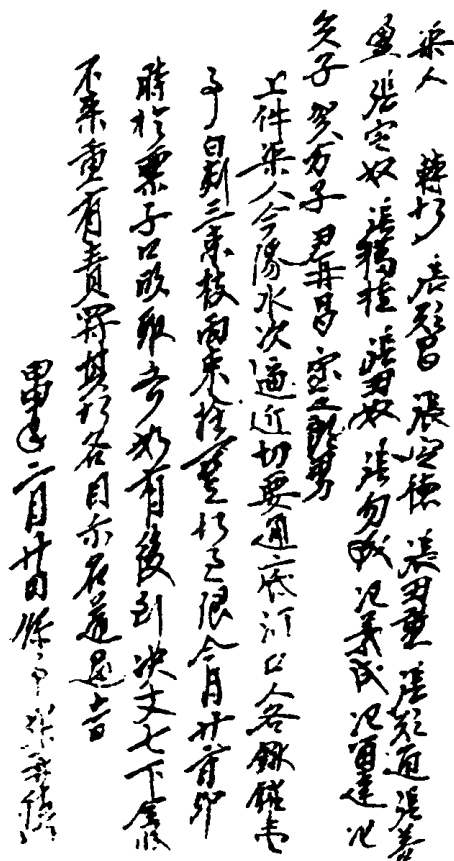 渠人 轉帖 張願昌 張定德 張丑憧 張願通 張善
張定奴 張犢樁 張丑奴 張勿成 氾義成 氾酉達 氾
久子 賀方子 尹再昌 安定男
上件渠人今緣水次逼近切要通底河口人各鍬钁壹
事白刺三束枝兩束拴一莖帖至限今月廿二日卯
時於票子口頭取齊如有後到決丈七下全段
不來重有責罸其帖各自示名遞過者
甲申年二月廿日錄事張帖